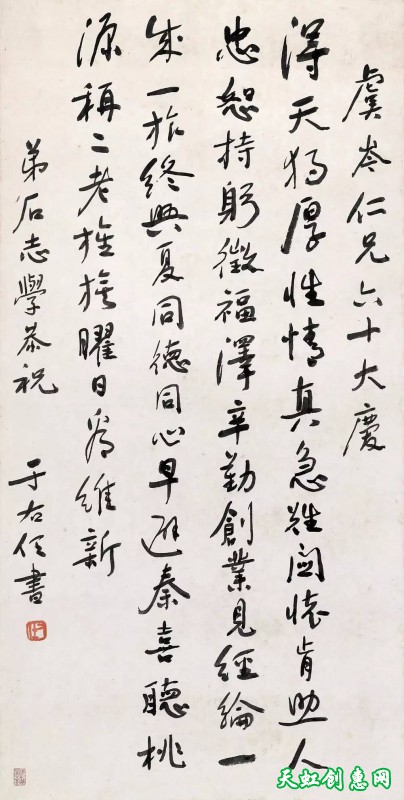 虞岑仁兄六十大慶
得天獨厚性情真急難關懷肯助人
忠恕持躬徵福澤辛勤創業見經綸一
成一旅終興夏同德同心早避秦喜聽桃
源稱二老旌旗曜日為維新
弟石志學恭祝 于右任書
天虹创惠网